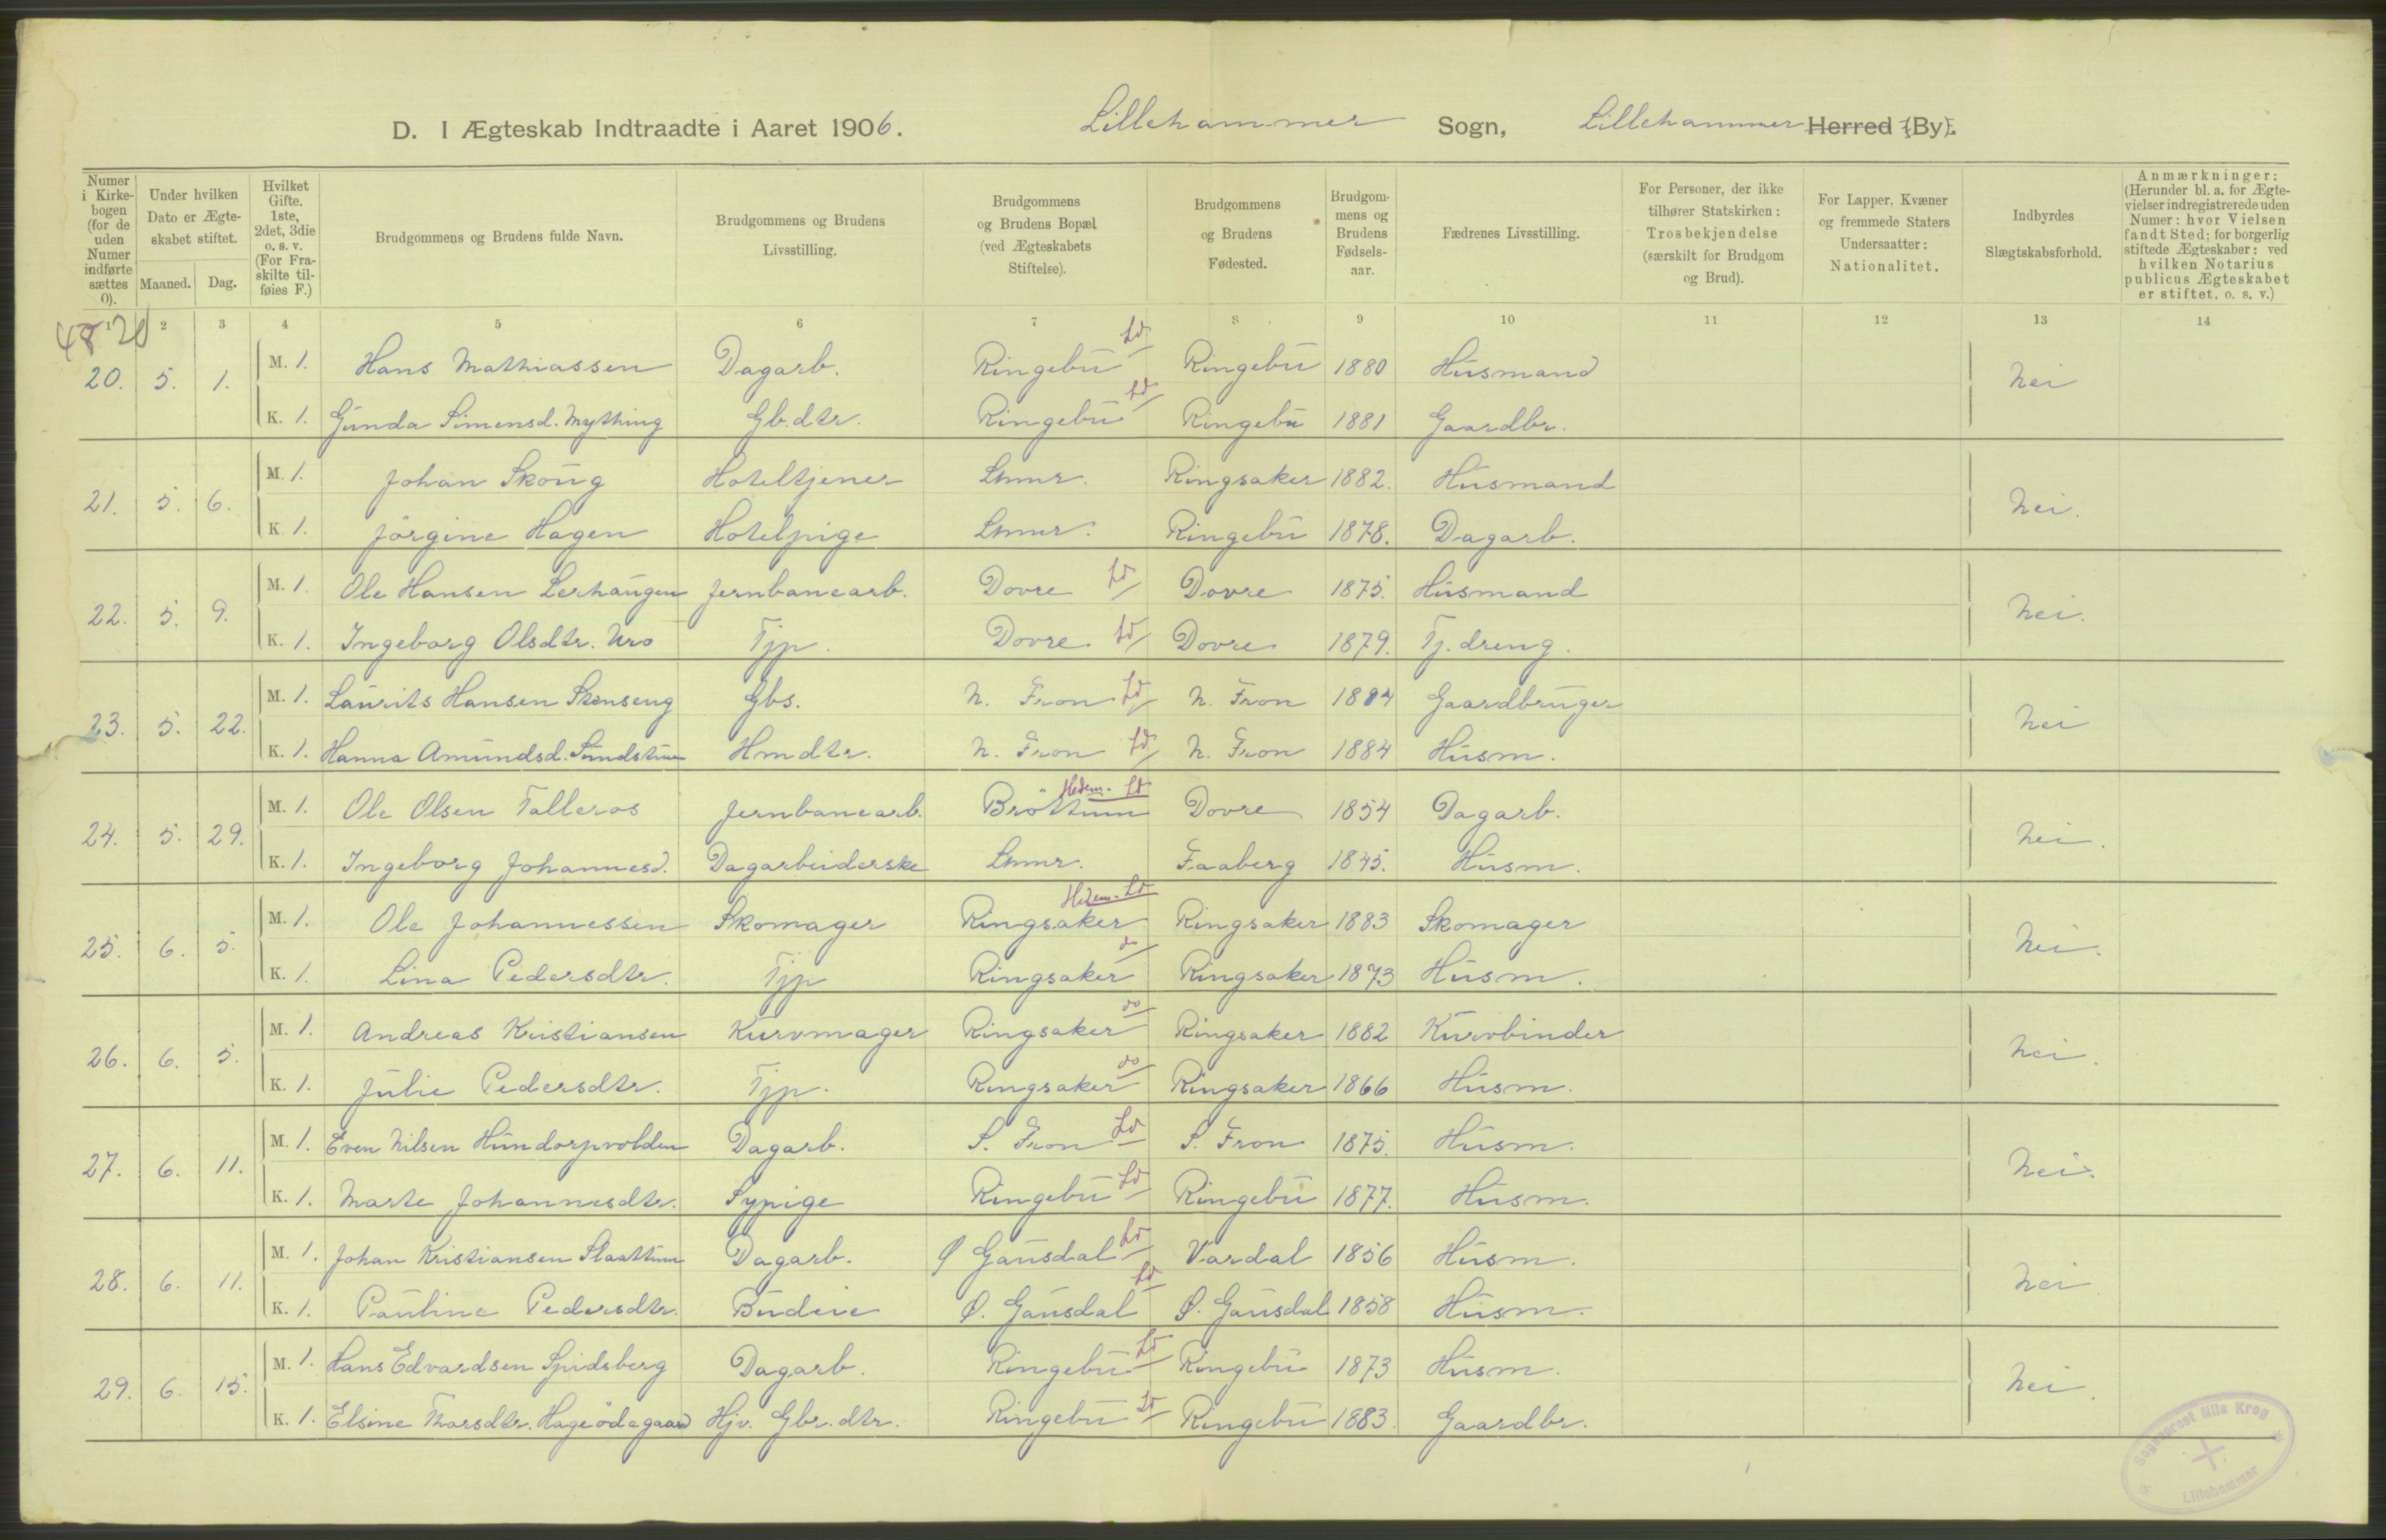 D. I Ægteskab Indtraadte i Aaret 1906. Lillehammer Sogn, Lillehammer Herred (By).
Numer i Kirke-bogen (for de uden Numer indførte sættes 0).
Under hvilken Dato er Ægte-skabet stiftet.
Maaned. Dag.
Hvilket Gifte. 1ste, 2det, 3die o. s. v. (For Fra-skilte til-føies F.)
Brudgommens og Brudens fulde Navn.
Brudgommens og Brudens Livsstilling.
Brudgommens og Brudens Bopæl (ved Ægteskabets Stiftelse).
Brudgommens og Brudens Fødested.
Brudgom-mens og Brudens Fødsels-aar.
Fædrenes Livsstilling.
For Personer, der ikke tilhører Statskirken: Trosbekjendelse (særskilt for Brudgom og Brud).
For Lapper, Kvæner og fremmede Staters Undersaatter: Nationalitet.
Indbyrdes Slægtskabsforhold.
Anmærkninger: (Herunder bl. a. for Ægte-vielser indregistrerede uden Numer: hvor Vielsen fandt Sted; for borgerlig stiftede Ægteskaber: ved hvilken Notarius publicus Ægteskabet er stiftet. o. s. v.)
1 2 3 4 5 6 7 8 9 10 11 12 13 14
48 20
20. 5. 1. M. 1. Hans Mathiassen Dagarb. Ringebu Ld Ringebu 1880 Husmand nei
K. 1. Gunda Simensd. Mything Gb.dtr. Ringebu Ld Ringebu 1881 Gaardbr.
21. 5. 6. M. 1. Johan Skoug Hoteltjener Lhmr. Ringsaker 1882. Husmand nei.
K. 1. Jörgine Hagen Hotelpige Lhmr. Ringebu 1878. Dagarb.
22. 5. 9. M. 1. Ole Hansen Lerhaugen Jernbanearb. Dovre Ld Dovre 1875. Husmand nei.
K. 1. Ingeborg Olsdtr. Uro Tjp. Dovre Ld Dovre 1879. Tj. dreng.
23. 5. 22. M. 1. Laurits Hansen Stenseng Gbs. N. Fron Ld N. Fron 1884 Gaardbruger nei
K. 1. Hanna Amundsd. Sundstuen Hmdtr. N. Fron Ld N. Fron 1884 Husm.
24. 5. 29. M. 1. Ole Olsen Talleras Jernbanearb. Bröttum Hedem. Ld Dovre 1854 Dagarb. nei.
K. 1. Ingeborg Johannesd. Dagarbeiderske Lhmr. Faaberg 1845. Husm.
25. 6. 5. M. 1. Ole Johannessen Skomager Ringsaker Hedem. Ld Ringsaker 1883 Skomager nei.
K. 1. Lina Pedersdtr. Tjp Ringsaker do Ringsaker 1873 Husm.
26. 6. 5. M. 1. Andreas Kristiansen Kurvmager Ringsaker do Ringsaker 1882 Kurvbinder nei.
K. 1. Julie Pedersdtr. Tjp. Ringsaker do Ringsaker 1866 Husm.
27. 6. 11. M. 1. Even Nilsen Hundorpvolden Dagarb. S. Fron Ld S. Fron 1875. Husm. nei.
K. 1. Marte Johannesdtr. Sypige Ringebu Ld Ringebu 1877. Husm.
28. 6. 11. M. 1. Johan Kristiansen Slaattum Dagarb. Ø Gausdal Ld Vardal 1856 Husm. nei.
K. 1. Pauline Pedersdtr. Budeie Ø. Gausdal Ld Ø. Gausdal 1858 Husm.
29. 6. 15. M. 1. Hans Edvardsen Spidsberg Dagarb. Ringebu Ld Ringebu 1873 Husm. nei.
K. 1. Elsine Thorsdtr. Hageödegaard Hjv. Gbr. dtr. Ringebu Ld Ringebu 1883. Gaardbr.
Sogneprest Nils Krog
Lillehammer